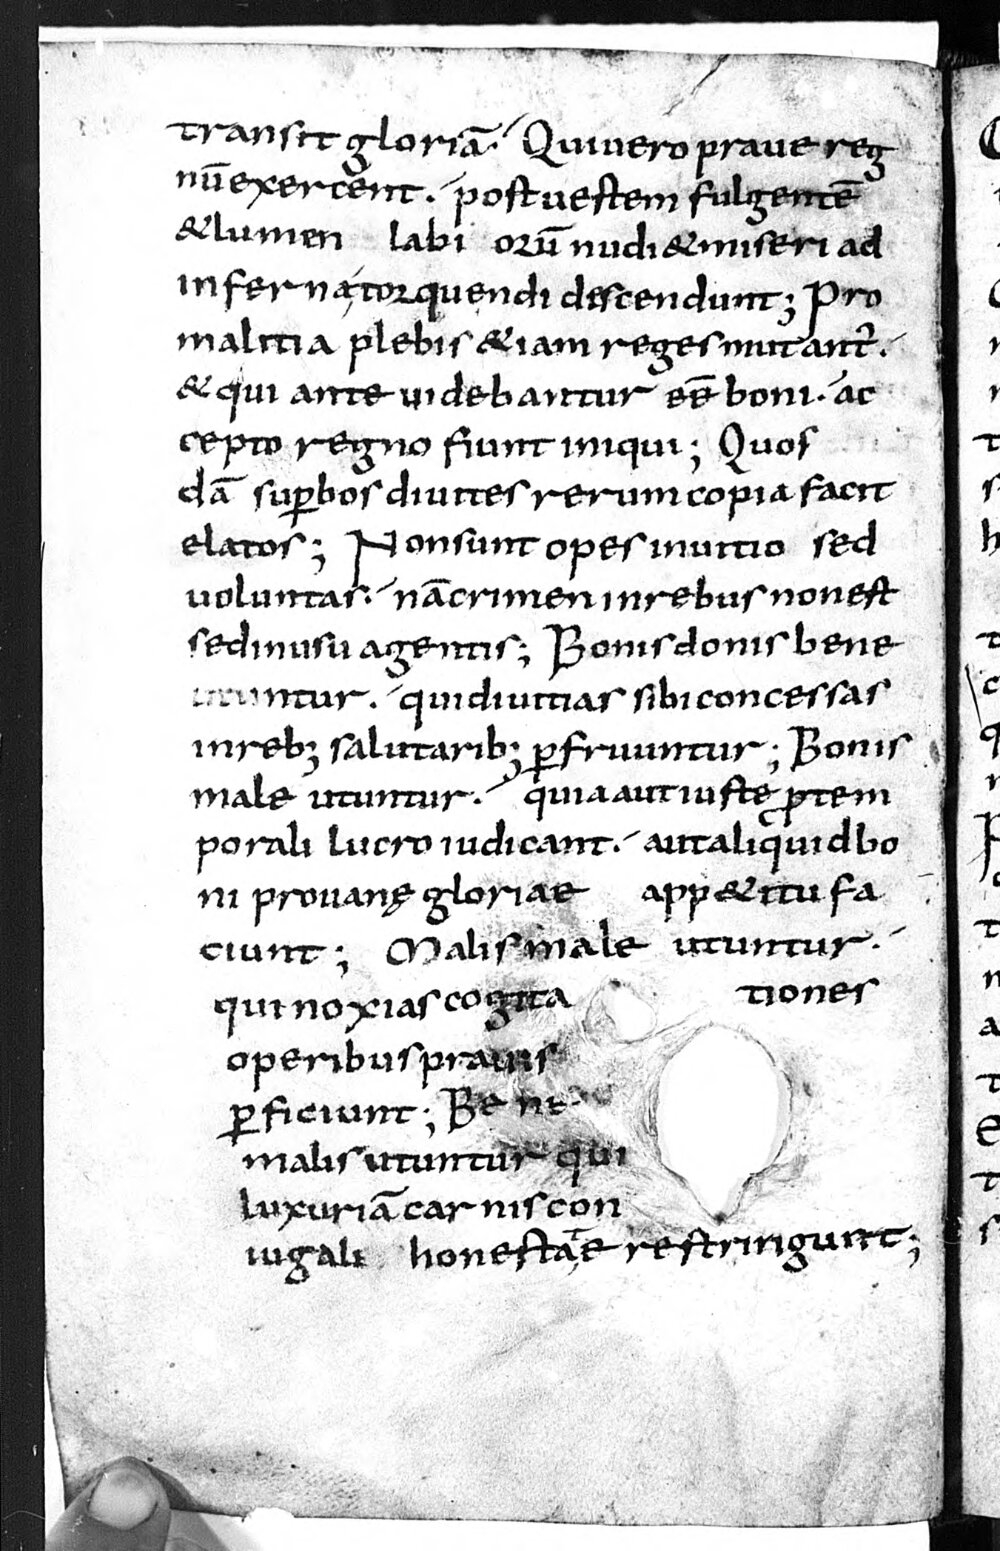 transit gloriā. Qui uero praue reg
nū exercent. post uestem fulgentē
& lumen labi orū nudi & miseri ad
inferna torquendi descendunt; Pro
malitia plebis & iam reges mutant̄.
& qui ante uidebantur eē boni. ac
cepto regno fiunt iniqui; Quos
dā sup̱bos diuites rerum copia facit
elatos; Non sunt opes in uitio sed
uoluntas. nā crimen in rebus non est
sed in usu agentis; Bonis donis bene
utuntur. qui diuitias sibi concessas
in reb; salutarib; p̱fruuntur; Bonis
male utuntur. quia aut iustę ꝓ tem
porali lucro iudicant. aut aliquid bo
ni pro uanę gloriae app&itu fa
ciunt; Malis male utuntur.
qui noxias cogita tiones
operibus prauis
p̱ficiunt; Bene
malis utuntur qui
luxuriā carnis con
iugali honestāe restringunt;